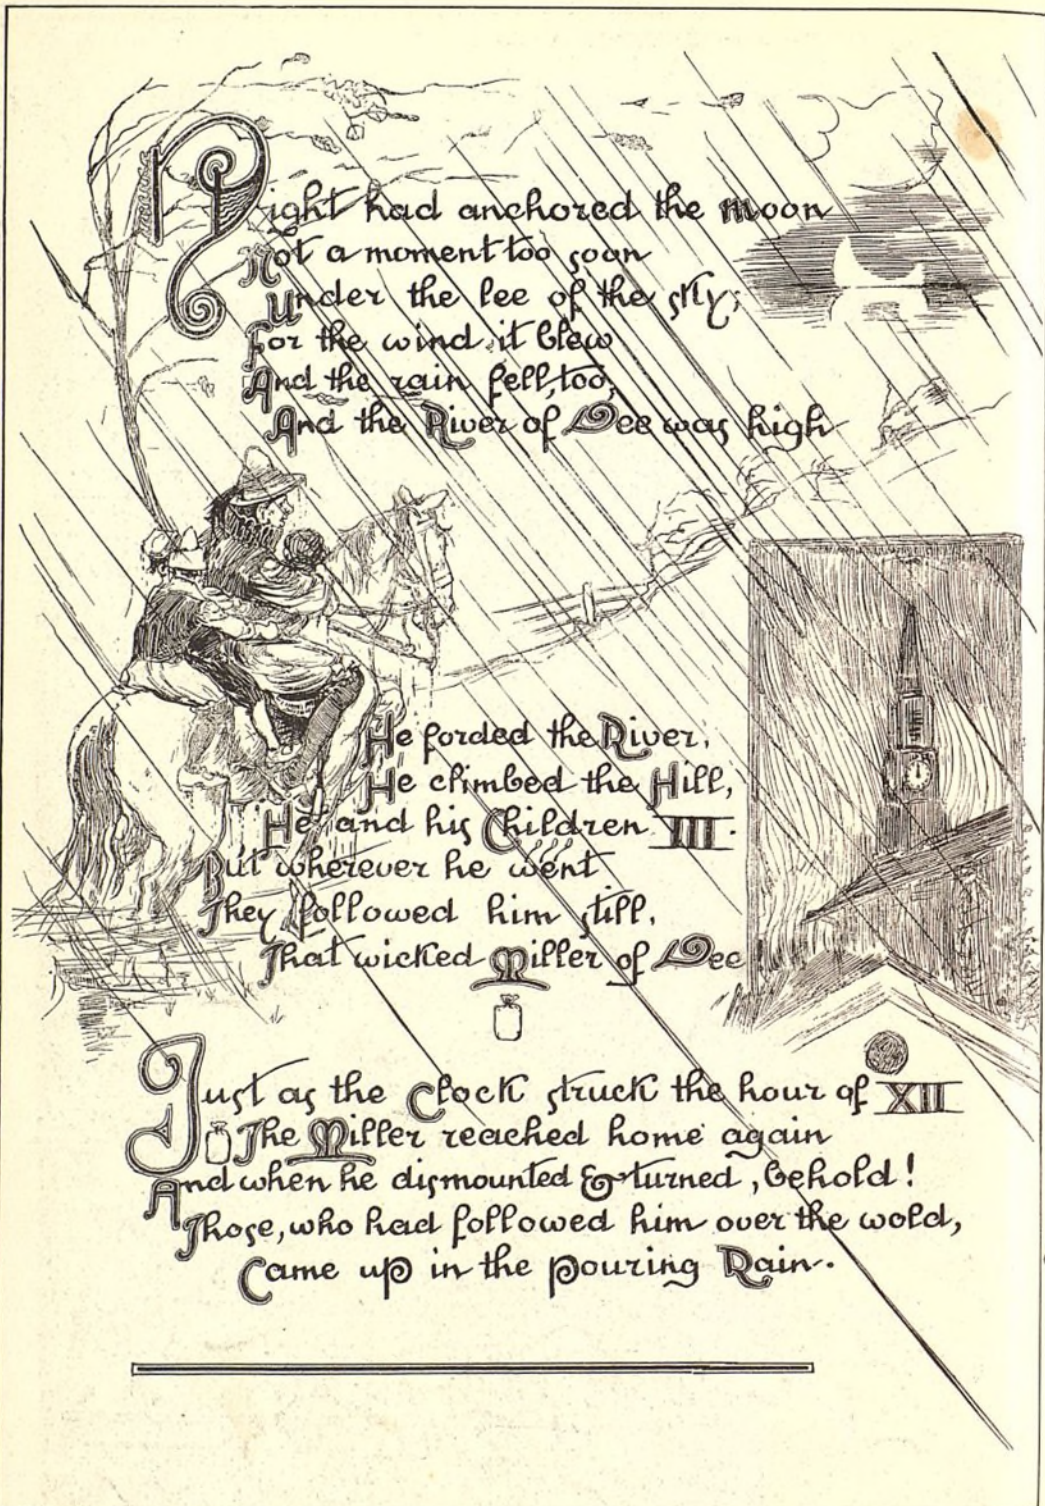 Night had anchored the Moon
Not a moment too soon
Under the lee of the sky;
For the wind it blew
And the rain fell, too,
And the River of Dee was high
He forded the River,
He climbed the Hill,
He and his Children III.
But wherever he went
They followed him still,
That wicked Miller of Dee!
Just as the Clock struck the hour of XII
The Miller reached home again
And when he dismounted & turned, behold!
Those, who had followed him over the wold,
Came up in the pouring Rain.